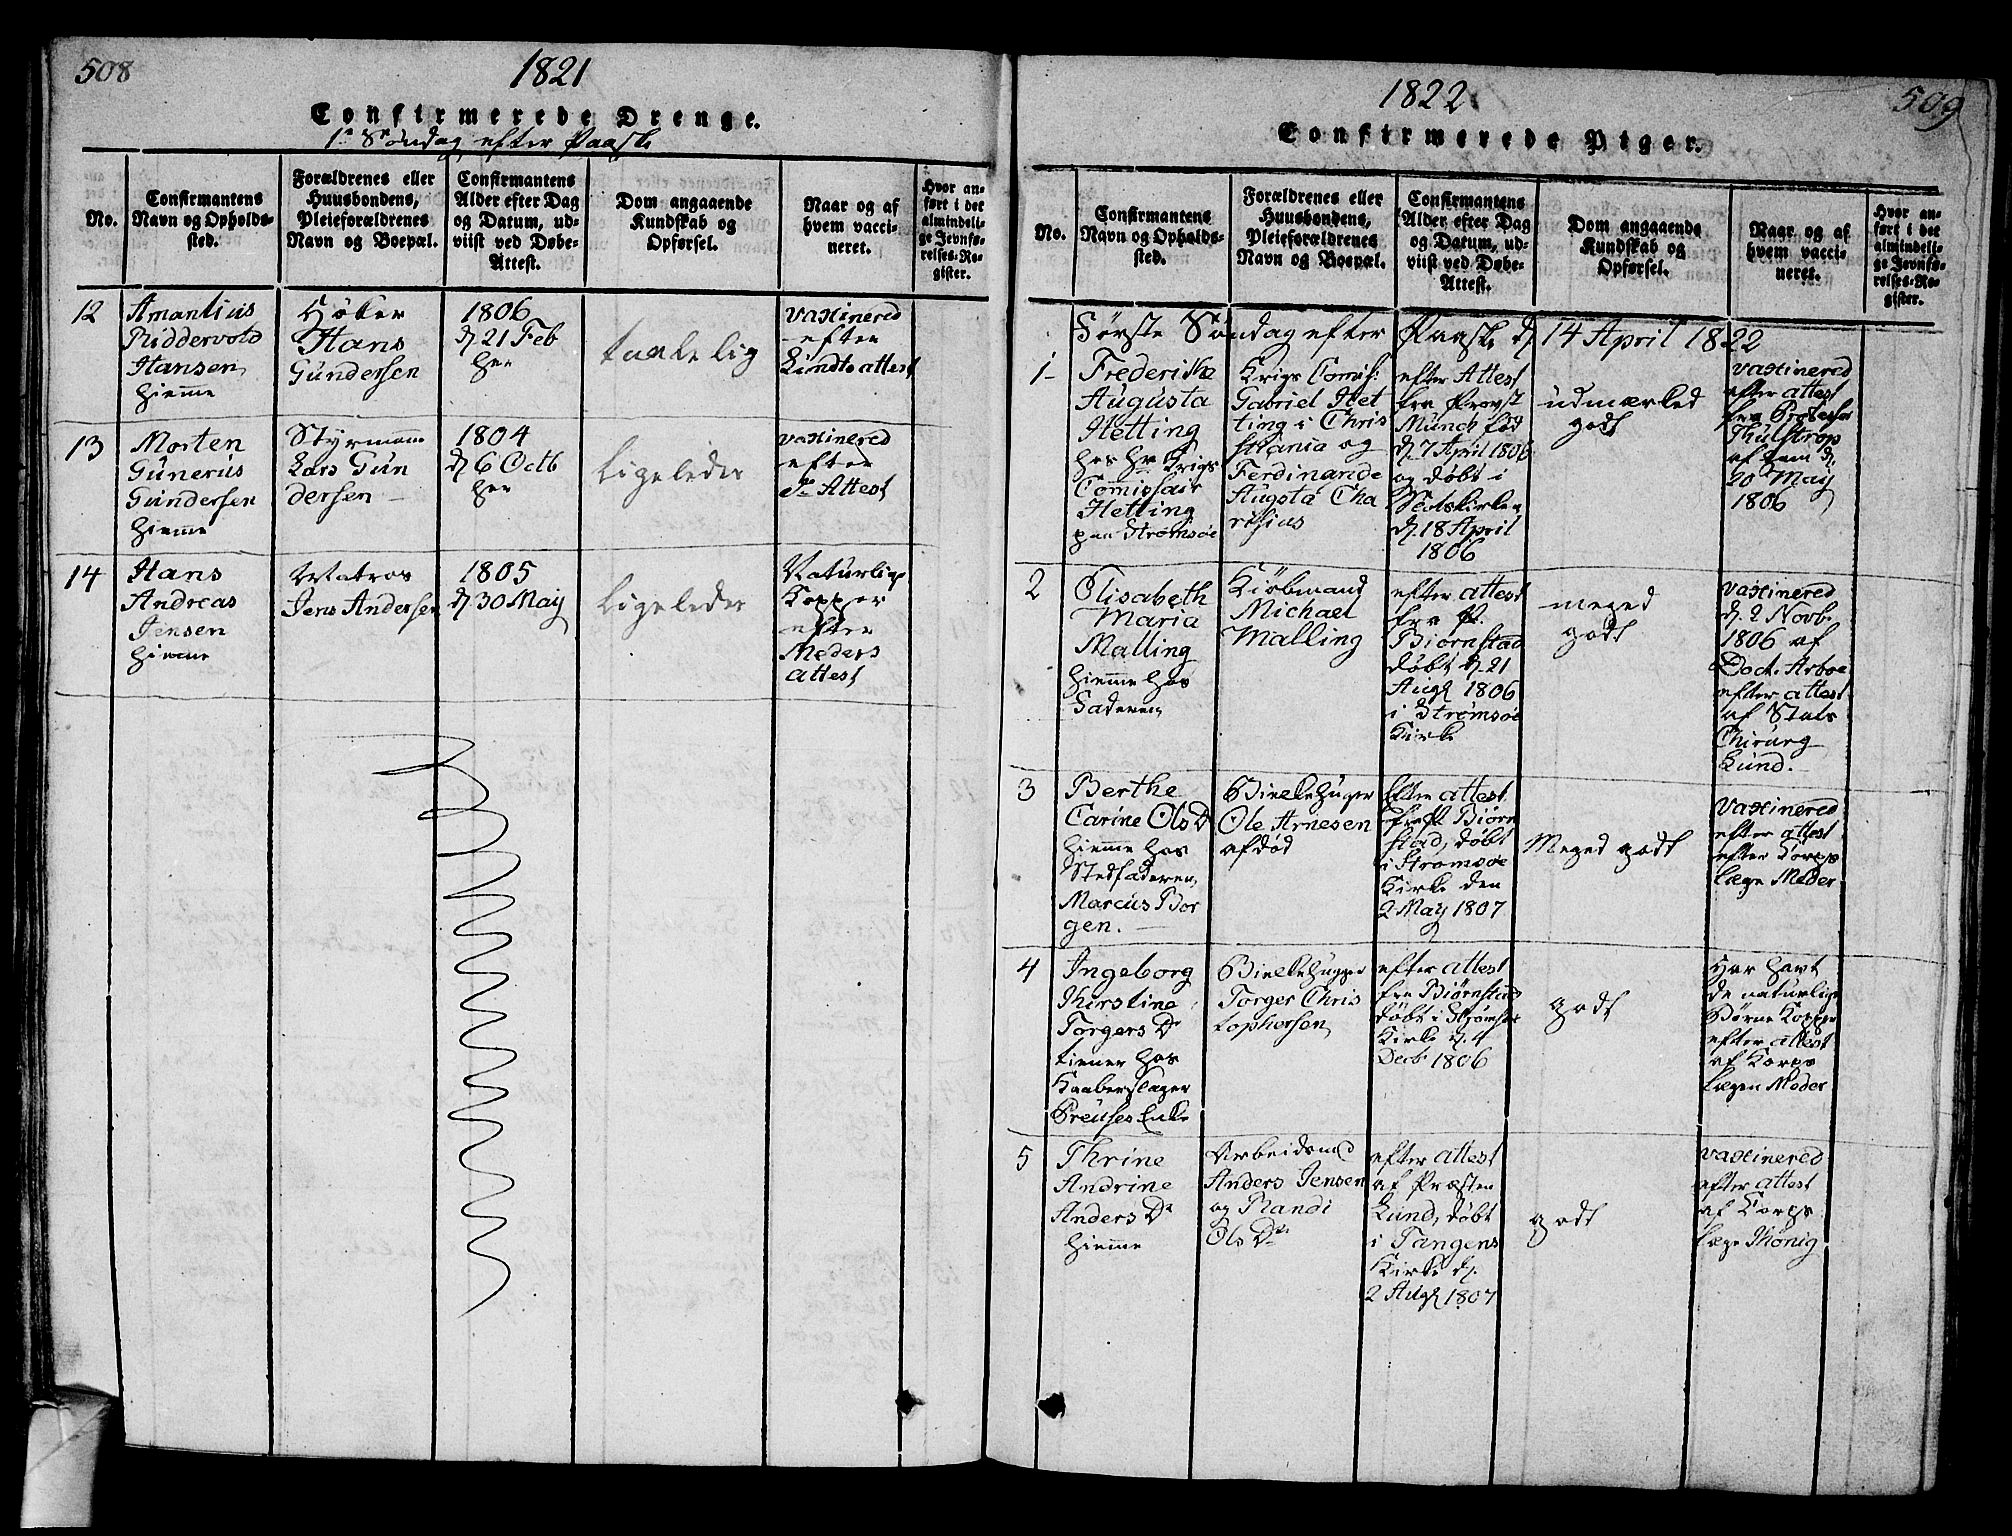 508
1821
Confirmerede Drenge.
1e Søndag efter Paaske
No.
Confirmantens
Navn og Opholds-
sted.
Forældrenes eller
Huusbondens,
Pleieforældrenes
Navn og Boepæl.
Confirmantens
Alder efter Dag
og Datum, ud-
viist ved Døbe-
Attest.
Dom angaaende
Kundskab og
Opførsel.
Naar og af
hvem vacci-
neret.
Hvor an-
ført i det
almindeli-
ge Jevnfø-
relses-Re-
gister.
12
Amantius
Riddervold
Hansen
hiemme
Høker
Hans
Gundersen
1806
d 21 Feb
her
taalelig
vaxinered
efter
Lindts attest
13
Morten
Gunerus
Gundersen
hiemme
Styrmann
Lars Gun
dersen
1804
d 6 Octb
her
Ligeledes
vaxinered
efter
Attest
14
Hans
Andreas
Jensen
hiemme
Matros
Jens Andersen
1805
d 30 May
Ligeledes
Naturlige
Kopper
efter
Meders
attest
1822
509
Confirmerede Piger.
No.
Confirmantens
Navn og Opholds-
sted.
Forældrenes eller
Huusbondens,
Pleieforældrenes
Navn og Boepæl.
Confirmantens
Alder efter Dag
og Datum, ud-
viist ved Døbe-
Attest.
Dom angaaende
Kundskab og
Opførsel.
Naar og af
hvem vacci-
neret.
Hvor an-
ført i det
almindeli-
ge Jevnfø-
relses-Re-
gister.
Første Søndag efter Paaske d 14 April 1822
1
Frederikke
Augusta
Hetting
hos Hr Krigs
Comissair
Hetting
paa Strømsøe
Krigs Comis:
Gabriel Het
ting i Chris
tiania og
Ferdinande
Augusta Cha
risius
efter Attest
fra Provst
Munch fød
d. 7 April 1806
og døbt i
d. 18 April
1806
udmærked
godt
vaxinered
efter attest
fra Professor
Thulstrop
af dem d.
20 May
1806
2
Elisabeth
Maria
Malling
hiemme hos
Faderen
Kiøbmand
Michael
Malling
efter attest
fra P.
Biørnstad
døbt d. 21
Aug 1806
i Strømsøe
Kirke
meged
godt
vaxinered
d. 2 Novb.
1806 af
Doct. Arboe
efter attest
af Stats
Chirurg
Lund.
3
Berthe
Carine Ols D
hiemme hos
Stedfaderen
Marcus Bor
gen.
Bielkehuger
Ole Arnesen
afdød
Efter attest
fra P. Biørn
stad, døbt
i Strømsøe
Kirke den
2 May 1807
Meged godt
vaxinered
efter attest
efter Corps
læge Meder
4
Ingeborg
Kirstine
Torgers Dr
tiener hos
Kaaberslager
Preuses Enke
Bielkehugger
Torger Chris
tophersen
efter attest
fra Biørnstad
døbt i Strømsøe
Kirke d. 4
Decb. 1806
godt
Har havt
de naturlige
Børne Kopper
efter attest
af Korps
lægen Meder
5
Thrine
Andrine
Anders Dr
hiemme
Arbeidsmd
Anders Jensen
og Randi
Ols Dr
efter attest
af Præsten
Lund, døbt
i Tangens
Kirke d.
2 Aug 1807
godt
vaxinered
efter attest
af Korps
læge Thönig